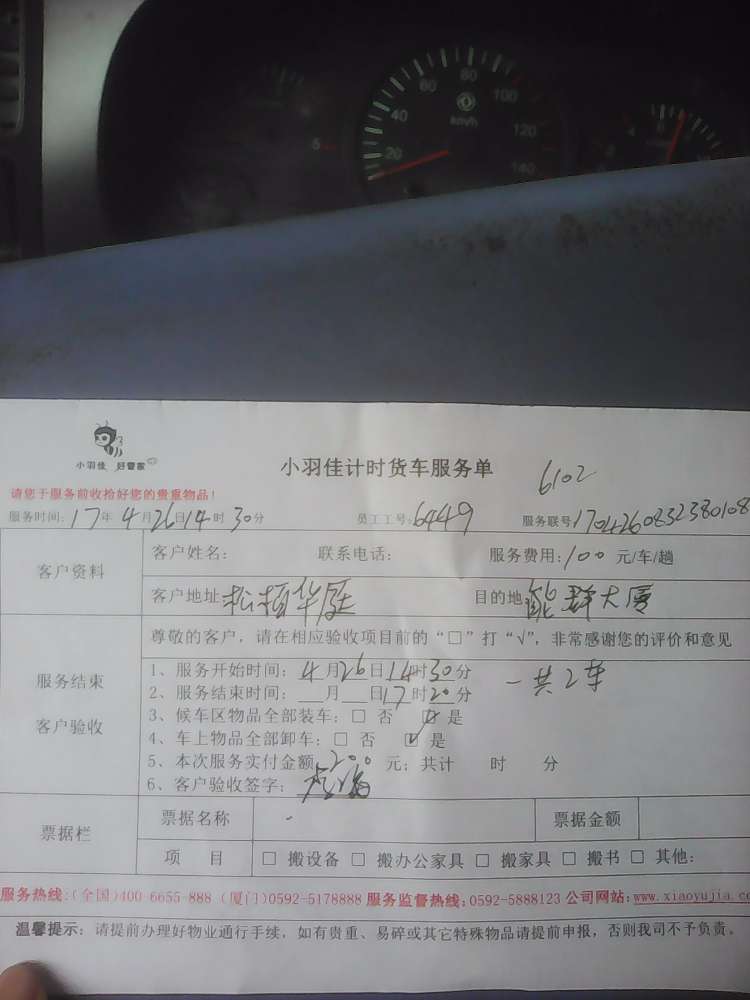 20
40
60
80
100
120
140
km/h
小羽佳 好管家
小羽佳计时货车服务单
6102
请您于服务前收拾好您的贵重物品!
服务时间:17年4月26日14时30分 员工工号:6449 服务联号1704260832380108
客户资料
客户姓名: 联系电话: 服务费用:100元/车/趟
客户地址 松柏华庭 目的地 能群大厦
尊敬的客户,请在相应验收项目前的“□”打“√”,非常感谢您的评价和意见
服务结束
客户验收
1、服务开始时间:4月26日14时30分
一共2车
2、服务结束时间:__月__日17时20分
3、候车区物品全部装车:□ 否 ☑ 是
4、车上物品全部卸车:□ 否 ☑ 是
5、本次服务实付金额 200 元;共计 时 分
6、客户验收签字:
票据栏
票据名称 票据金额
项 目 □ 搬设备 □ 搬办公家具 □ 搬家具 □ 搬书 □ 其他:
服务热线:(全国)400-6655-888 (厦门)0592-5178888 服务监督热线:0592-5888123 公司网站:www.xiaoyujia.c
温馨提示:请提前办理好物业通行手续,如有贵重、易碎或其它特殊物品请提前申报,否则我司不予负责。